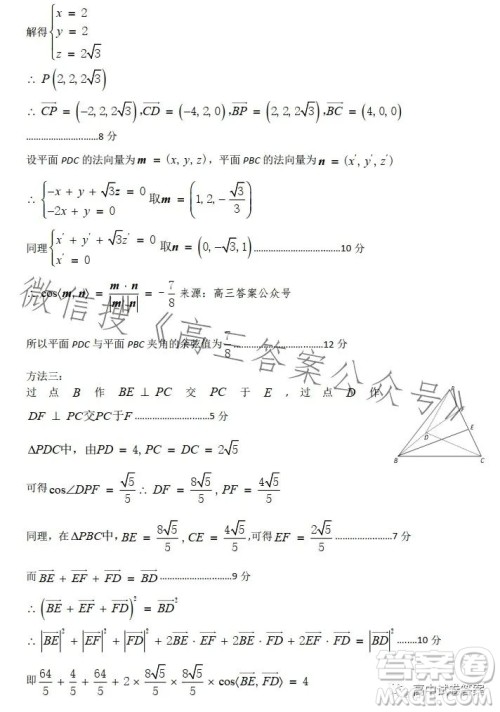 解得{x = 2
y = 2
z = 2√3
∴ P(2,2,2√3)
∴ CP→ = (−2,2,2√3),CD→ = (−4,2,0),BP→ = (2,2,2√3),BC→ = (4,0,0)
............................8 分
设平面 PDC 的法向量为 m = (x, y, z)，平面 PBC 的法向量为 n = (x′, y′, z′)
∴ {−x + y + √3z = 0
−2x + y = 0 取m = (1,2,−√3/3)
同理{x′ + y′ + √3z′ = 0
x′ = 0 取n = (0,−√3,1)..............................10 分
∴ cos⟨m, n⟩ = m · n/|m||n| = −7/8 来源：高三答案公众号
所以平面 PDC 与平面 PBC 夹角的余弦值为7/8..............................12 分
方法三：
过 点 B 作 BE ⊥ PC 交 PC 于 E ， 过 点 D 作
DF ⊥ PC交PC于F........................5 分
ΔPDC中，由PD = 4,PC = DC = 2√5
可得cos∠DPF = √5/5 ∴ DF = 8√5/5, PF = 4√5/5
同理，在ΔPBC中，BE = 8√5/5,CE = 4√5/5,可得EF = 2√5/5......................7 分
而BE→ + EF→ + FD→ = BD→............................9 分
∴ (BE→ + EF→ + FD→)² = BD→²
∴ |BE→|² + |EF→|² + |FD→|² + 2BE→ · EF→ + 2BE→ · FD→ + 2EF→ · FD→ = |BD→|²........10 分
即64/5 + 4/5 + 64/5 + 2 × 8√5/5 × 8√5/5 × cos⟨BE→, FD→⟩ = 4
D
E
B
C
微信搜《高三答案公众号》
高中试卷答案
答案圈